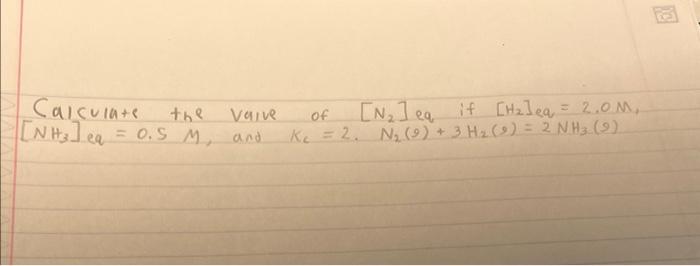 Calculate the value of [N₂]eq if [H₂]eq = 2.0 M,
[NH₃]eq = 0.5 M, and Kc = 2. N₂(g) + 3 H₂(g) = 2 NH₃(g)